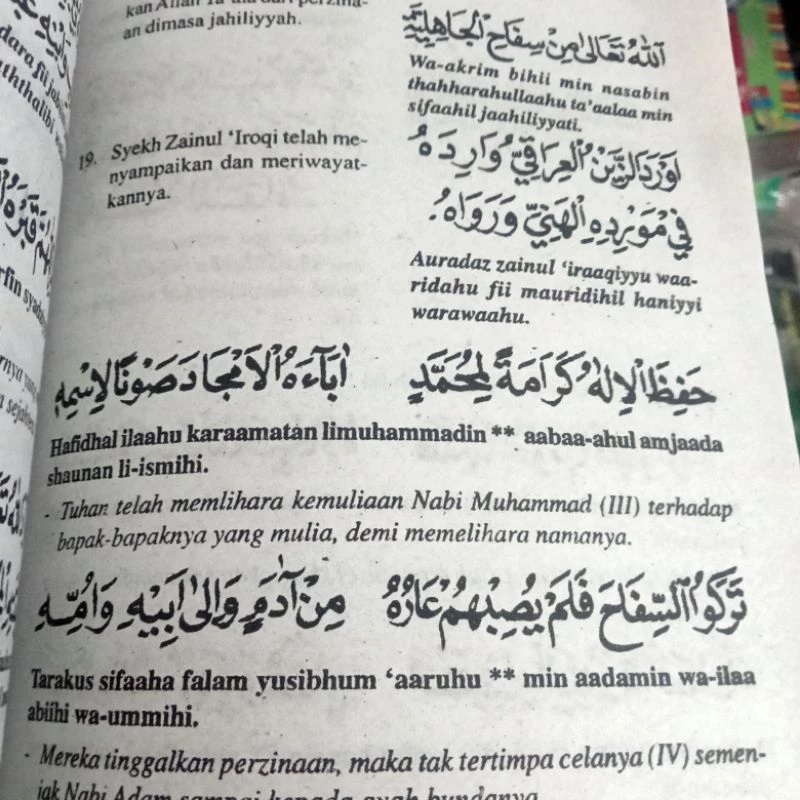 kan Allah Ta'ala dari perzina-
an dimasa jahiliyyah.
اَللهُ تَعَالَى مِنْ سِفَاحِ الْجَاهِلِيَّةِ
Wa-akrim bihii min nasabin
thahharahullaahu ta'aalaa min
sifaahil jaahiliyyati.
19. Syekh Zainul 'Iroqi telah me-
nyampaikan dan meriwayat-
kannya.
اَوْرَدَالزَّيْنُ الْعِرَاقِيُّ وَارِدَهُ
فِيْ مَوْرِدِهِ الْهَنِيِّ وَرَوَاهُ.
Auradaz zainul 'iraaqiyyu waa-
ridahu fii mauridihil haniyyi
warawaahu.
حَفِظَ الْاِلٰهُ كَرَامَةً لِمُحَمَّدٍ اٰبَآءَهُ الْاَمْجَادَ صَوْنًا لِاسْمِهِ
Hafidhal ilaahu karaamatan limuhammadin ** aabaa-ahul amjaada
shaunan li-ismihi.
- Tuhan telah memlihara kemuliaan Nabi Muhammad (III) terhadap
bapak-bapaknya yang mulia, demi memelihara namanya.
تَرَكُوا السِّفَاحَ فَلَمْ يُصِبْهُمْ عَارُهُ مِنْ اٰدَمٍ وَاِلٰى اَبِيْهِ وَاُمِّهِ
Tarakus sifaaha falam yusibhum 'aaruhu ** min aadamin wa-ilaa
abiihi wa-ummihi.
- Mereka tinggalkan perzinaan, maka tak tertimpa celanya (IV) semen-
jak Nabi Adam sampai kepada ayah bundanya.